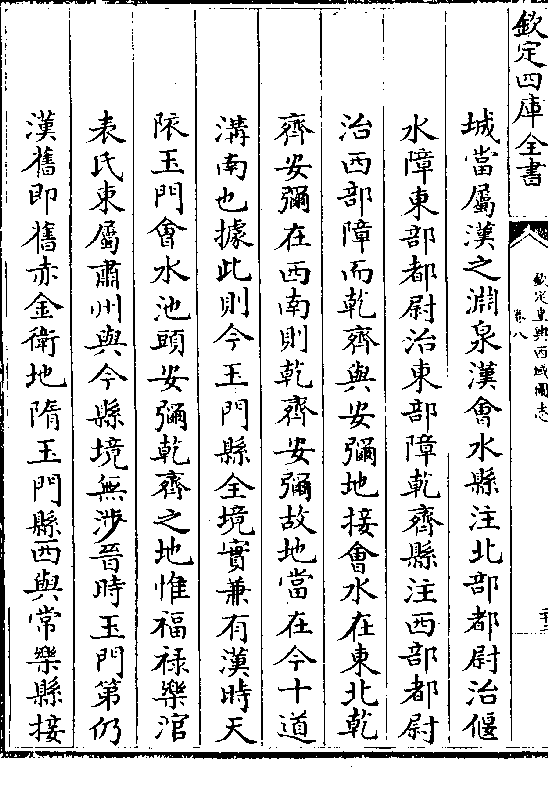 欽定四庫全書
欽定皇輿西域圖志
卷八
城當屬漢之淵泉漢會水縣注北部都尉治偃
水障東部都尉治東部障乾齊縣注西部都尉
治西部障而乾齊與安彌地接會水在東北乾
齊安彌在西南則乾齊安彌故地當在今十道
溝南也據此則今玉門縣全境實兼有漢時天
陜玉門會水池頭安彌乾齊之地惟福祿樂涫
表氏東屬肅州與今縣境無涉晉時玉門第仍
漢舊即舊赤金衛地隋玉門縣西與常樂縣接